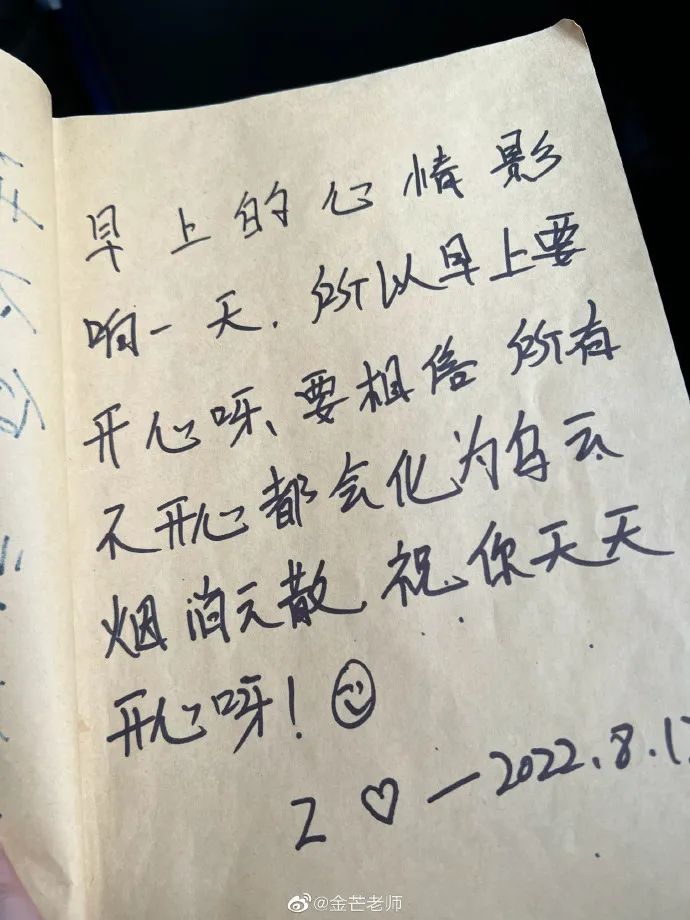 早上的心情影
响一天.所以早上要
开心呀、要相信所有
不开心都会化为乌云
烟消云散 祝你天天
开心呀!
Z ♡ — 2022.8.1
@金芒老师